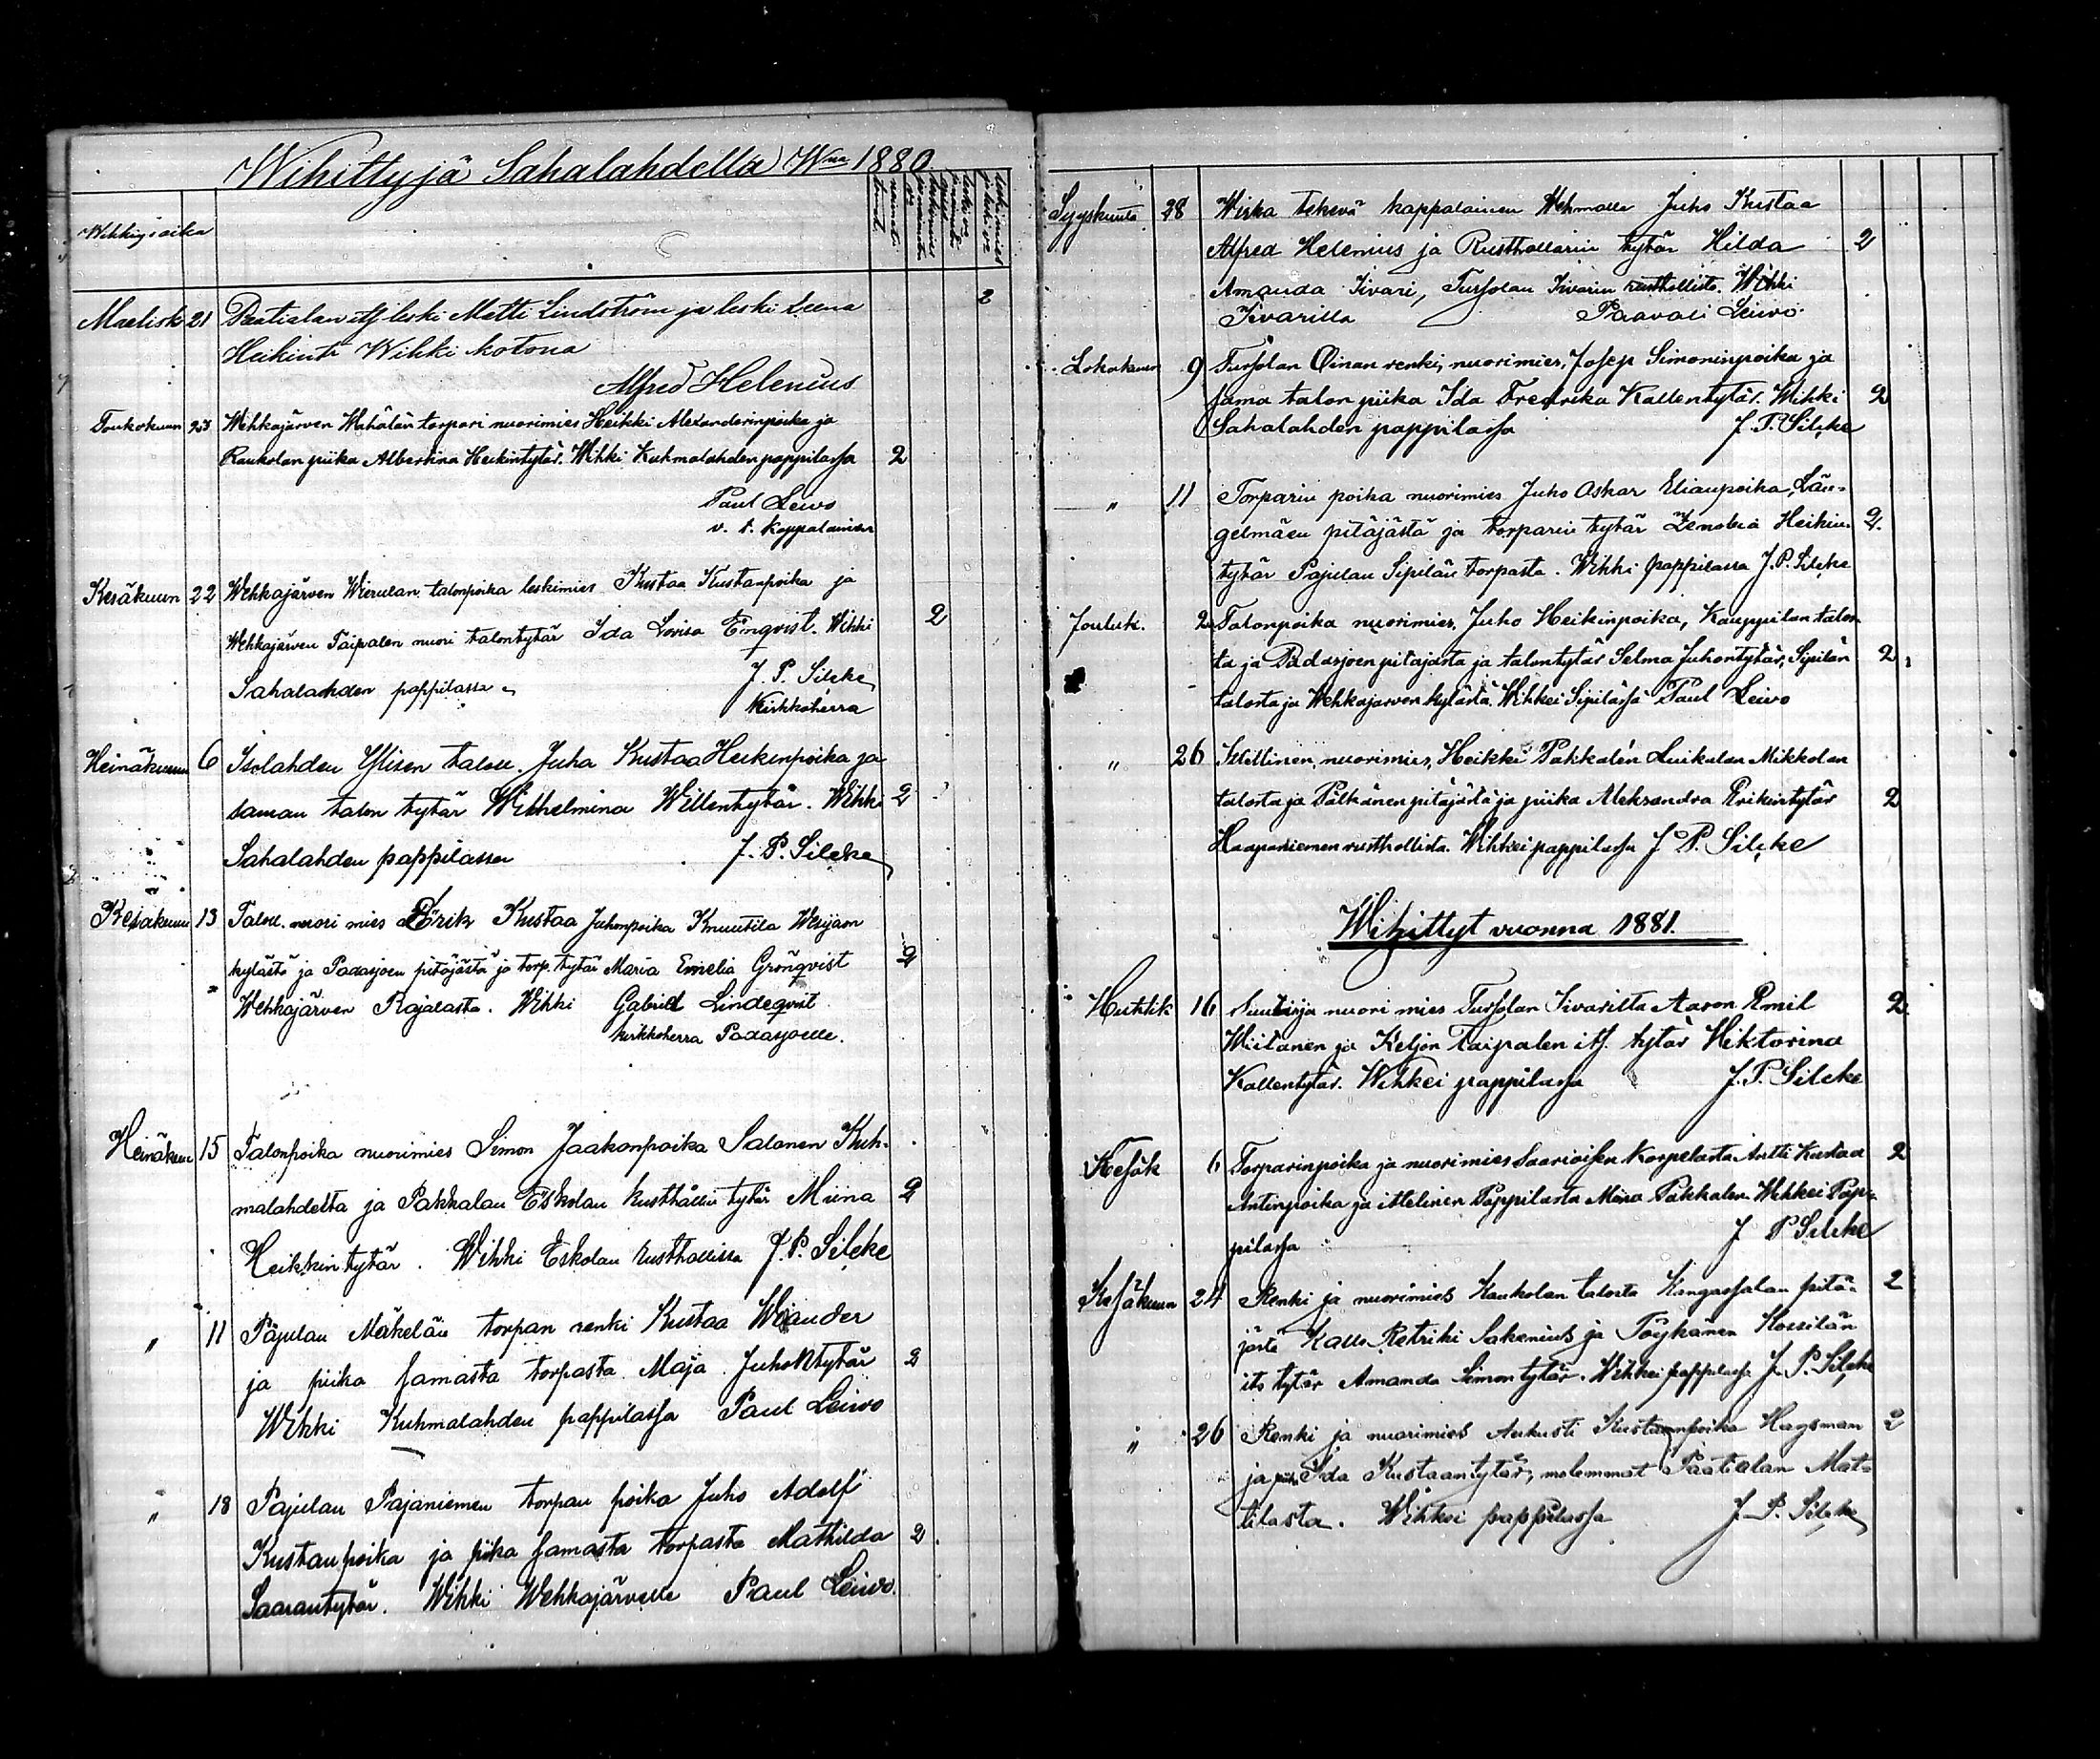 Wihittyjä Sahalahdella Wna 1880
Wihkigisaika
Maalisk 21 Paatialan itf leski Matti Lindström ja leski Leena 2
Heikint Wihki kotona
Alfred Helenius
Toukokuun 23 Wehkajärven Mahälän torpari nuorimies Heikki Alexanderinpoika ja
Raukolan piika Albertina Heikintytär. Wihki Kuhmalahden pappilassa 2
Paul Leivo
v. t. Kappalainen
Kesäkuun 22 Wehkajärven Wierulan talonpoika leskimies Kustaa Kustanpoika ja
Wehkajärven Taipalen nuori talontytär Ida Lovisa Enqvist. Wihki 2
Sahalahden pappilassa J. P. Silcke
Kirkkoherra
Heinäkuun 6 Isolahden Ylisen talou. Juha Kustaa Heikinpoika ja
saman talon tytär Wilhelmina Willentytär. Wihki 2
Sahalahden pappilassa J. P. Silcke
Kesäkuun 13 Talou. nuori mies Erik Kustaa Juhonpoika Knuutila Wesijaon
kylästä ja Padasjoen pitäjästä ja torp. tytär Maria Emelia Grönqvist 2
Wehkajärven Rajalasta. Wihki Gabriel Lindeqvist
kirkkoherra Padasjoelle.
Heinäkuun 15 Talonpoika nuorimies Simon Jaakonpoika Salonen Kuh-
malahdelta ja Pakkalan Eskolan rusthollin tytär Miina 2
Heikkintytär. Wihki Eskolan rusthollissa J. P. Silcke
" 11 Pajulan Mäkelän torpan renki Kustaa Wander
ja piika samasta torpasta Maja Juhontytär 2
Wihki Kuhmalahden pappilassa Paul Leivo
" 18 Pajulan Pajaniemen torpan poika Juho Adolf
Kustanpoika ja piika samasta torpasta Mathilda 2
Saarantytär. Wihki Wehkajärvelle Paul Leivo.
Syyskuuta 28 Wirka tekevä kappalainen Wehmalle Juho Kustaa
Alfred Helenius ja Rusthollarin tytär Hilda 2
Amanda Iivari, Tursolan Iivarin rusthollista. Wihki
Iivarilla Paavali Leivo.
Lokakuun 9 Tursolan Oinan renki, nuorimies, Josep Simoninpoika ja
sama talon piika Ida Fredrika Kallentytär. Wihki 2
Sahalahden pappilassa J. P. Silcke
" 11 Torparin poika nuorimies Juho Oskar Elianpoika, Län-
gelmäen pitäjästä ja torparin tytär Zenobia Heikin- 2.
tytär Pajulan Sipilän torpasta. Wihki pappilassa J. P. Silcke
Jouluk. 2 Talonpoika nuorimies, Juho Heikinpoika, Kauppilan talos-
ta ja Padasjoen pitäjästä ja talontytär Selma Juhontytär, Sipilän 2
talosta ja Wehkajärven kylästä. Wihkei Sipilässä Paul Leivo
" 26 Itsellinen, nuorimies, Heikki Pakkalen Luikalan Mikkolan
talosta ja Pälkänen pitäjästä ja piika Aleksandra Erikintytär 2
Haapaniemen rusthollista. Wihkei pappilassa J. P. Silcke
Wihittyt vuonna 1881.
Huhtik 16 Suutarja nuori mies Tursolan Iivarilta Aaron Emil 2
Wiitanen ja Keljon Taipalen itf. tytär Wiktorina
Kallentytär. Wihkei pappilassa J. P. Silcke
Kesäk 6 Torparinpoika ja nuorimies Saarioisen Korpelasta Antti Kustaa 2
Antinpoika ja ittelinen Pappilasta Mina Pakkalen. Wihkei Pap-
pilassa J P Silcke
Kesäkuun 24 Renki ja nuorimies Kaukolan talosta Kangasalan pitä- 2
jästä Kalle Retriki Sakenius ja Töykänen Kossilän
its tytär Amanda Simontytär. Wihkei pappilassa J. P. Silcke
" 26 Renki ja nuorimies Aukusti Kustaanpoika Hagsman 2
ja piika Ida Kustaantytär, molemmat Paatialan Mat-
tilasta. Wihkei pappilassa J. P. Silcke